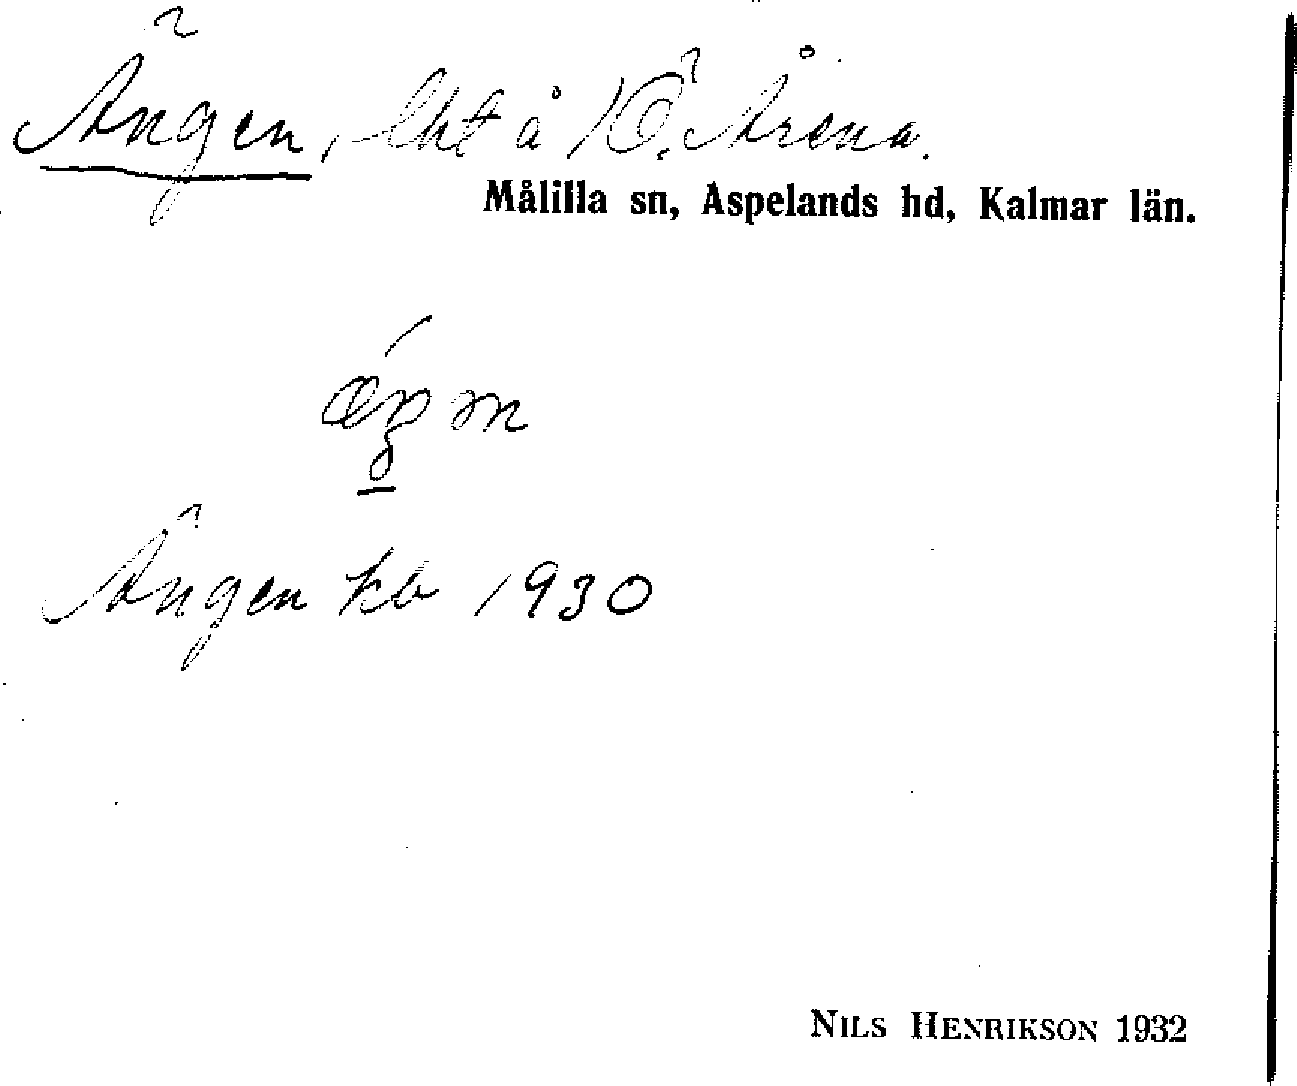 Ängen, lht å Ö. Årena.
Målilla sn, Aspelands hd, Kalmar län.
Ängen kb 1930
NILS HENRIKSON 1932